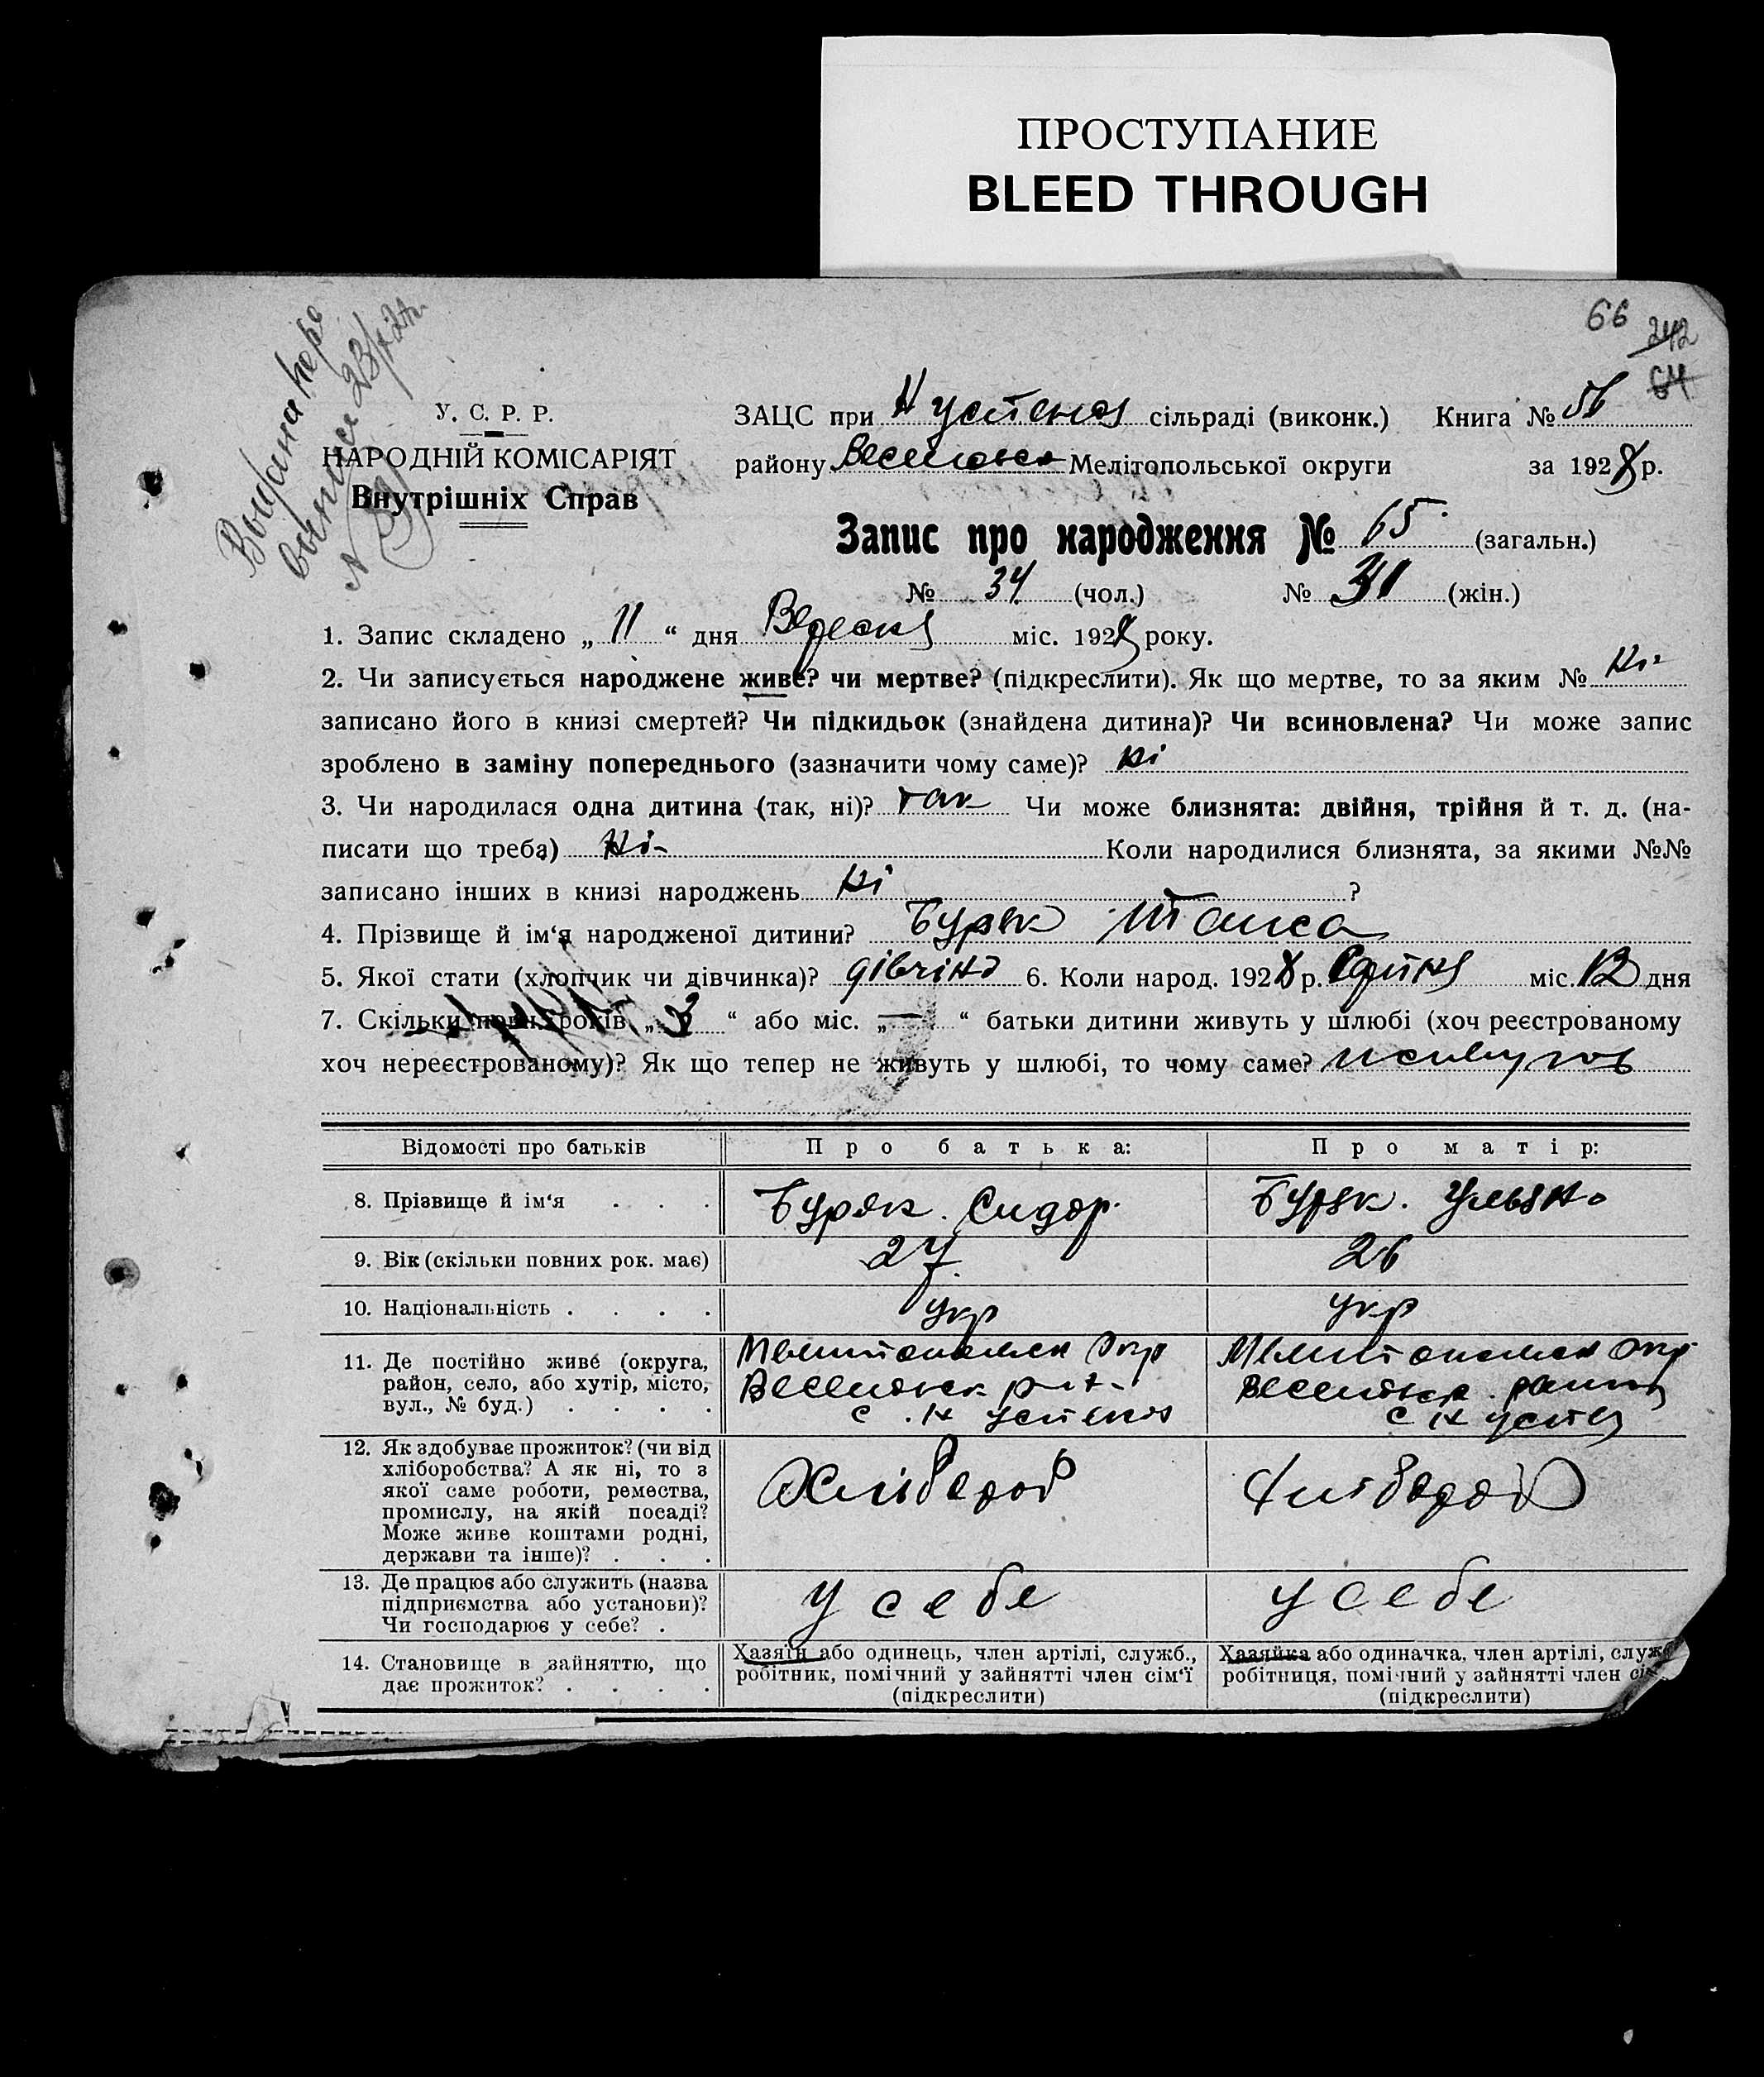 ПРОСТУПАНИЕ
BLEED THROUGH
66
242
64
Выдана
23/
У. С. Р. Р.
НАРОДНІЙ КОМІСАРІЯТ
Внутрішніх Справ
ЗАЦС при Н Успеной сільраді (виконк.) Книга № 56
району Веселовск Мелітопольської округи за 1928 р.
Запис про народження № 65 (загальн.)
№ 34 (чол.) № 31 (жін.)
1. Запис складено „ 11 “ дня Вересня міс. 1928 року.
2. Чи записується народжене живе? чи мертве? (підкреслити). Як що мертве, то за яким № Ні
записано його в книзі смертей? Чи підкидьок (знайдена дитина)? Чи всиновлена? Чи може запис
зроблено в заміну попереднього (зазначити чому саме)? Ні
3. Чи народилася одна дитина (так, ні)? так Чи може близнята: двійня, трійня й т. д. (на-
писати що треба) Ні Коли народилися близнята, за якими №№
записано інших в книзі народжень Ні ?
4. Прізвище й ім‘я народженої дитини? Буряк
5. Якої стати (хлопчик чи дівчинка)? дівчіна 6. Коли народ. 1928 р. міс. 12 дня
7. Скільки повн. років „ 3 “ або міс. „ — “ батьки дитини живуть у шлюбі (хоч реєстрованому
хоч нереєстрованому)? Як що тепер не живуть у шлюбі, то чому саме? живуть
Відомості про батьків Про батька: Про матір:
8. Прізвище й ім‘я . . . Буряк. Сидор. Буряк. Ульяна
9. Вік (скільки повних рок. має) 27 26
10. Національність . . . . укр укр
11. Де постійно живе (округа, Мелитопольск Окр Мелитопольск Окр
район, село, або хутір, місто, Веселовск р-н Веселовск район
вул., № буд.) . . . . с. Н Успеной с Н Успен
12. Як здобуває прожиток? (чи від
хліборобства? А як ні, то з
якої саме роботи, ремества, Хлібороб Хлібороб
промислу, на якій посаді?
Може живе коштами родні,
держави та інше)? . . .
13. Де працює або служить (назва
підприємства або установи)? У себе У себе
Чи господарює у себе? .
14. Становище в зайняттю, що Хазяїн або одинець, член артілі, служб., Хазяйка або одиначка, член артілі, служб
дає прожиток? . . . . робітник, помічний у зайнятті член сім‘ї робітниця, помічний у зайнятті член сі
(підкреслити) (підкреслити)